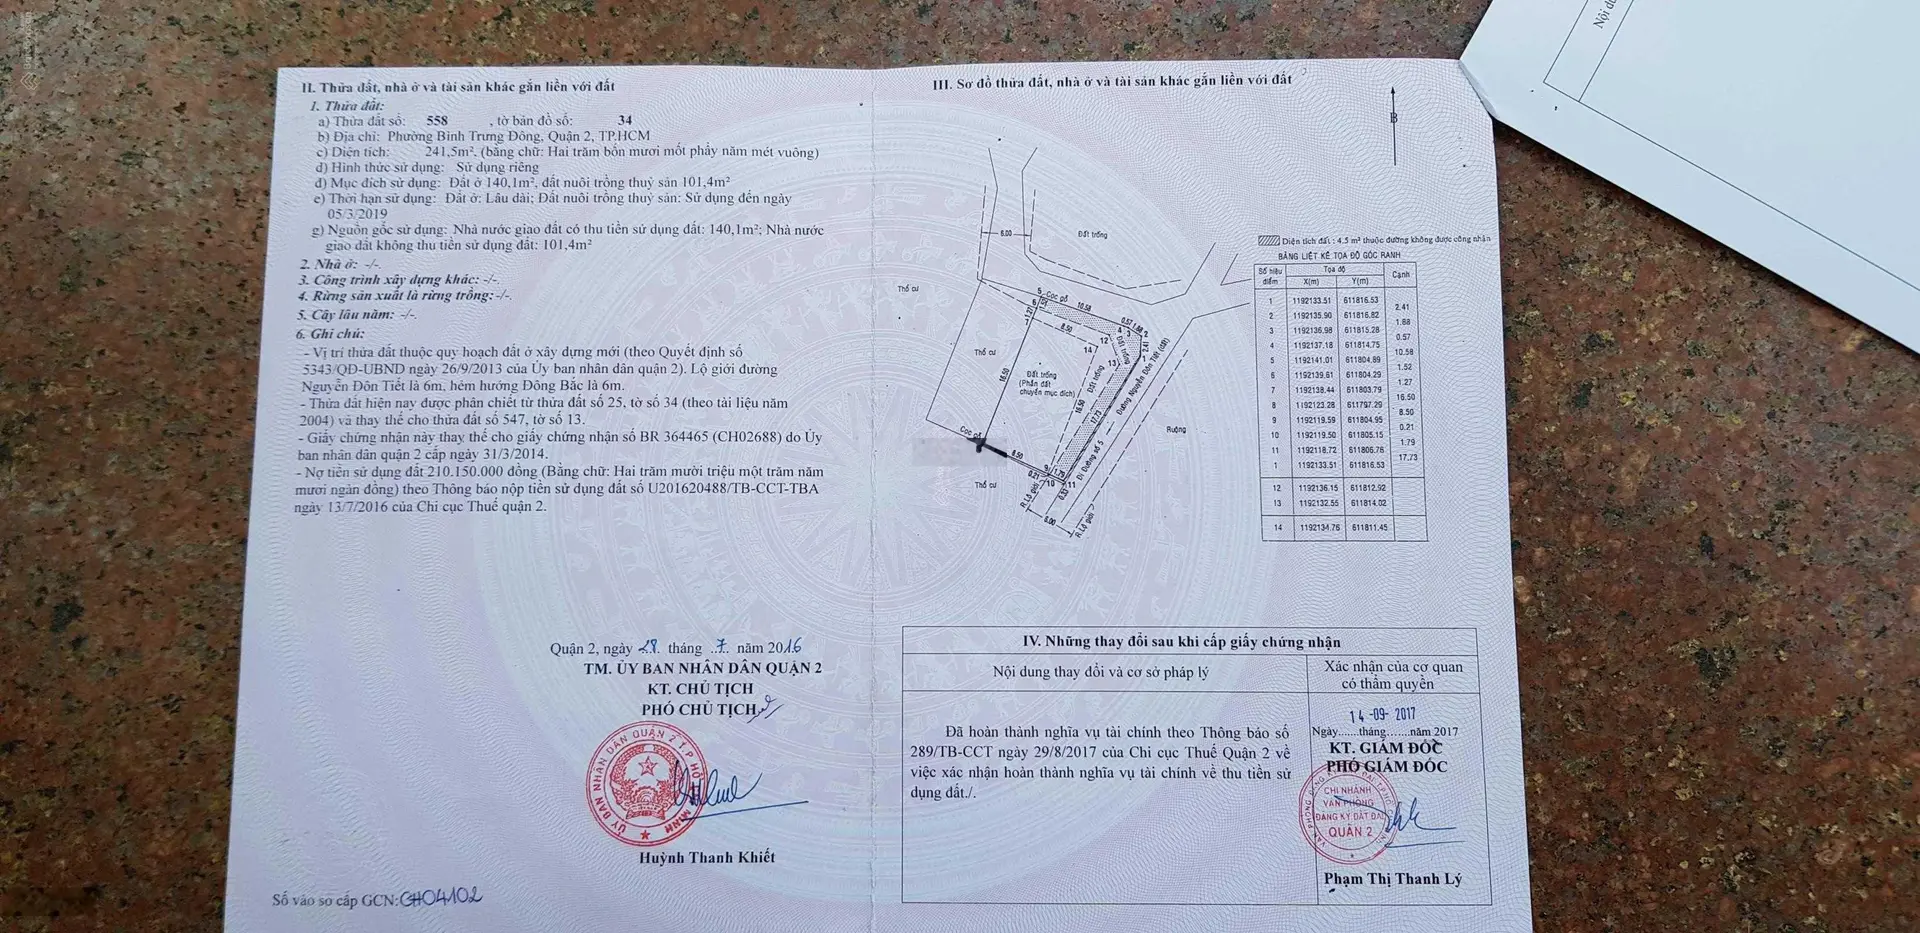 II. Thửa đất, nhà ở và tài sản khác gắn liền với đất
1. Thửa đất:
a) Thửa đất số: 558 , tờ bản đồ số: 34
b) Địa chỉ: Phường Bình Trưng Đông, Quận 2, TP.HCM
c) Diện tích: 241,5m², (bằng chữ: Hai trăm bốn mươi mốt phẩy năm mét vuông)
d) Hình thức sử dụng: Sử dụng riêng
đ) Mục đích sử dụng: Đất ở 140,1m², đất nuôi trồng thuỷ sản 101,4m²
e) Thời hạn sử dụng: Đất ở: Lâu dài; Đất nuôi trồng thuỷ sản: Sử dụng đến ngày
05/3/2019
g) Nguồn gốc sử dụng: Nhà nước giao đất có thu tiền sử dụng đất: 140,1m²; Nhà nước
giao đất không thu tiền sử dụng đất: 101,4m²
2. Nhà ở: -/-.
3. Công trình xây dựng khác: -/-.
4. Rừng sản xuất là rừng trồng:-/-.
5. Cây lâu năm: -/-.
6. Ghi chú:
- Vị trí thửa đất thuộc quy hoạch đất ở xây dựng mới (theo Quyết định số
5343/QĐ-UBND ngày 26/9/2013 của Ủy ban nhân dân quận 2). Lộ giới đường
Nguyễn Đôn Tiết là 6m, hẻm hướng Đông Bắc là 6m.
- Thửa đất hiện nay được phân chiết từ thửa đất số 25, tờ số 34 (theo tài liệu năm
2004) và thay thế cho thửa đất số 547, tờ số 13.
- Giấy chứng nhận này thay thế cho giấy chứng nhận số BR 364465 (CH02688) do Ủy
ban nhân dân quận 2 cấp ngày 31/3/2014.
- Nợ tiền sử dụng đất 210.150.000 đồng (Bằng chữ: Hai trăm mười triệu một trăm năm
mươi ngàn đồng) theo Thông báo nộp tiền sử dụng đất số U201620488/TB-CCT-TBA
ngày 13/7/2016 của Chi cục Thuế quận 2.
Quận 2, ngày 28. tháng .7. năm 2016
TM. ỦY BAN NHÂN DÂN QUẬN 2
KT. CHỦ TỊCH
PHÓ CHỦ TỊCH
ỦY BAN NHÂN DÂN QUẬN 2 T.P HỒ CHÍ MINH
Huỳnh Thanh Khiết
Số vào sổ cấp GCN: CH04102
III. Sơ đồ thửa đất, nhà ở và tài sản khác gắn liền với đất
B
6.00
Đất trống
Thổ cư
5
Cọc gỗ
10.58
6
1.27
7
8.50
0.57
1.68
2
4
3
12
2.41
1
14
13
Thổ cư
16.50
Đất trống
(Phần đất
chuyển mục đích)
Đất trống
Đất trống
16.50
17.73
Đường Nguyễn Đôn Tiết (đất)
Ruộng
Cọc gỗ
8.50
9
1.79
0.21
10
11
Đi Đường số 5
Thổ cư
0.33
R. Lộ giới
6.00
R. Lộ giới
Diện tích đất : 4.5 m² thuộc đường không được công nhận
BẢNG LIỆT KÊ TỌA ĐỘ GÓC RANH
Số hiệu điểm Tọa độ Cạnh
X(m) Y(m)
1 1192133.51 611816.53
2.41
2 1192135.90 611816.82
1.68
3 1192136.98 611815.28
0.57
4 1192137.18 611814.75
10.58
5 1192141.01 611804.89
1.52
6 1192139.61 611804.29
1.27
7 1192138.44 611803.79
16.50
8 1192123.28 611797.29
8.50
9 1192119.59 611804.95
0.21
10 1192119.50 611805.15
1.79
11 1192118.72 611806.76
17.73
1 1192133.51 611816.53
12 1192136.15 611812.92
13 1192132.55 611814.02
14 1192134.76 611811.45
IV. Những thay đổi sau khi cấp giấy chứng nhận
Nội dung thay đổi và cơ sở pháp lý
Xác nhận của cơ quan
có thẩm quyền
Đã hoàn thành nghĩa vụ tài chính theo Thông báo số
289/TB-CCT ngày 29/8/2017 của Chi cục Thuế Quận 2 về
việc xác nhận hoàn thành nghĩa vụ tài chính về thu tiền sử
dụng đất./.
14 -09- 2017
Ngày......tháng......năm 2017
KT. GIÁM ĐỐC
PHÓ GIÁM ĐỐC
CHI NHÁNH
VĂN PHÒNG
ĐĂNG KÝ ĐẤT ĐAI
QUẬN 2
Phạm Thị Thanh Lý